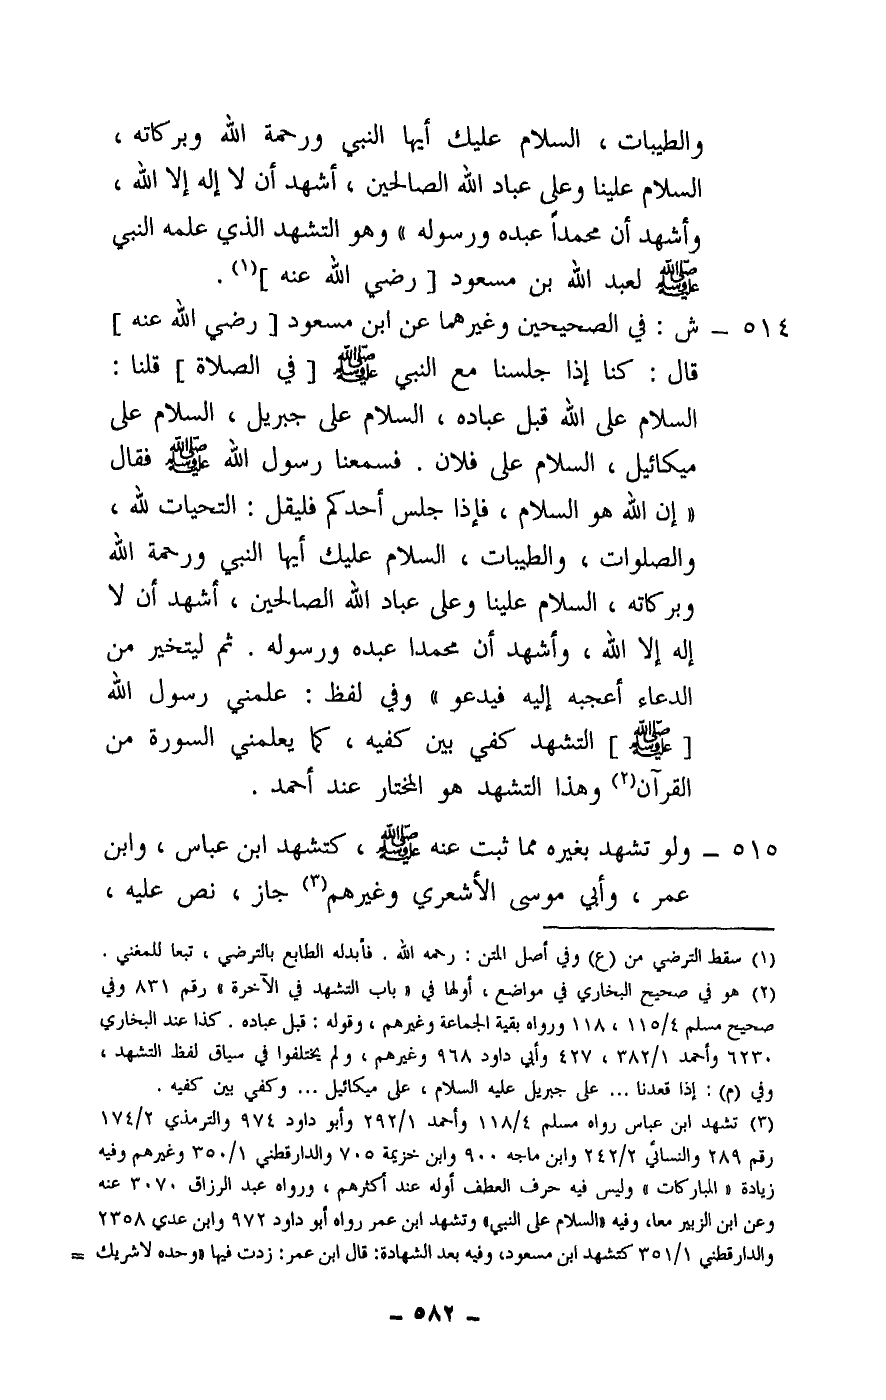 والطيبات ، السلام عليك أيها النبي ورحمة الله وبركاته ،
السلام علينا وعلى عباد الله الصالحين ، أشهد أن لا إله إلا الله ،
وأشهد أن محمداً عبده ورسوله » وهو التشهد الذي علمه النبي
ﷺ لعبد الله بن مسعود [ رضي الله عنه ](١) .
٥١٤ – ش : في الصحيحين وغيرهما عن ابن مسعود [ رضي الله عنه ]
قال : كنا إذا جلسنا مع النبي ﷺ [ في الصلاة ] قلنا :
السلام على الله قبل عباده ، السلام على جبريل ، السلام على
ميكائيل ، السلام على فلان . فسمعنا رسول الله ﷺ فقال
« إن الله هو السلام ، فإذا جلس أحدكم فليقل : التحيات لله ،
والصلوات ، والطيبات ، السلام عليك أيها النبي ورحمة الله
وبركاته ، السلام علينا وعلى عباد الله الصالحين ، أشهد أن لا
إله إلا الله ، وأشهد أن محمدا عبده ورسوله . ثم ليتخير من
الدعاء أعجبه إليه فيدعو » وفي لفظ : علمني رسول الله
[ ﷺ ] التشهد كفي بين كفيه ، كما يعلمني السورة من
القرآن(٢) وهذا التشهد هو المختار عند أحمد .
٥١٥ – ولو تشهد بغيره مما ثبت عنه ﷺ ، كتشهد ابن عباس ، وابن
عمر ، وأبي موسى الأشعري وغيرهم(٣) جاز ، نص عليه ،
(١) سقط الترضي من (ع) وفي أصل المتن : رحمه الله . فأبدله الطابع بالترضي ، تبعا للمغني .
(٢) هو في صحيح البخاري في مواضع ، أولها في « باب التشهد في الآخرة » رقم ٨٣١ وفي
صحيح مسلم ١١٥/٤ ، ١١٨ ورواه بقية الجماعة وغيرهم ، وقوله : قبل عباده . كذا عند البخاري
٦٢٣٠ وأحمد ٣٨٢/١ ، ٤٢٧ وأبي داود ٩٦٨ وغيرهم ، ولم يختلفوا في سياق لفظ التشهد ،
وفي (م) : إذا قعدنا ... على جبريل عليه السلام ، على ميكائيل ... وكفي بين كفيه .
(٣) تشهد ابن عباس رواه مسلم ١١٨/٤ وأحمد ٢٩٢/١ وأبو داود ٩٧٤ والترمذي ١٧٤/٢
رقم ٢٨٩ والنسائي ٢٤٢/٢ وابن ماجه ٩٠٠ وابن خزيمة ٧٠٥ والدارقطني ٣٥٠/١ وغيرهم وفيه
زيادة « المباركات » وليس فيه حرف العطف أوله عند أكثرهم ، ورواه عبد الرزاق ٣٠٧٠ عنه
وعن ابن الزبير معا، وفيه «السلام على النبي» وتشهد ابن عمر رواه أبو داود ٩٧٢ وابن عدي ٢٣٥٨
والدارقطني ٣٥١/١ كتشهد ابن مسعود، وفيه بعد الشهادة: قال ابن عمر: زدت فيها «وحده لاشريك =
– ٥٨٢ –